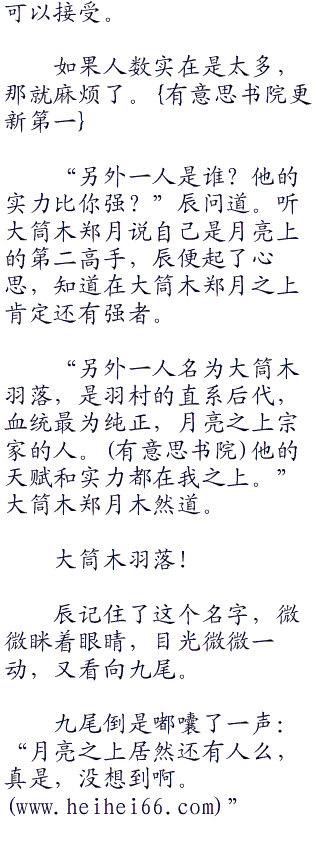 可以接受。
如果人数实在是太多，
那就麻烦了。{有意思书院更
新第一}
“另外一人是谁？他的
实力比你强？”辰问道。听
大筒木郑月说自己是月亮上
的第二高手，辰便起了心
思，知道在大筒木郑月之上
肯定还有强者。
“另外一人名为大筒木
羽落，是羽村的直系后代，
血统最为纯正，月亮之上宗
家的人。(有意思书院)他的
天赋和实力都在我之上。”
大筒木郑月木然道。
大筒木羽落！
辰记住了这个名字，微
微眯着眼睛，目光微微一
动，又看向九尾。
九尾倒是嘟囔了一声：
“月亮之上居然还有人么，
真是，没想到啊。
(www.heihei66.com)”